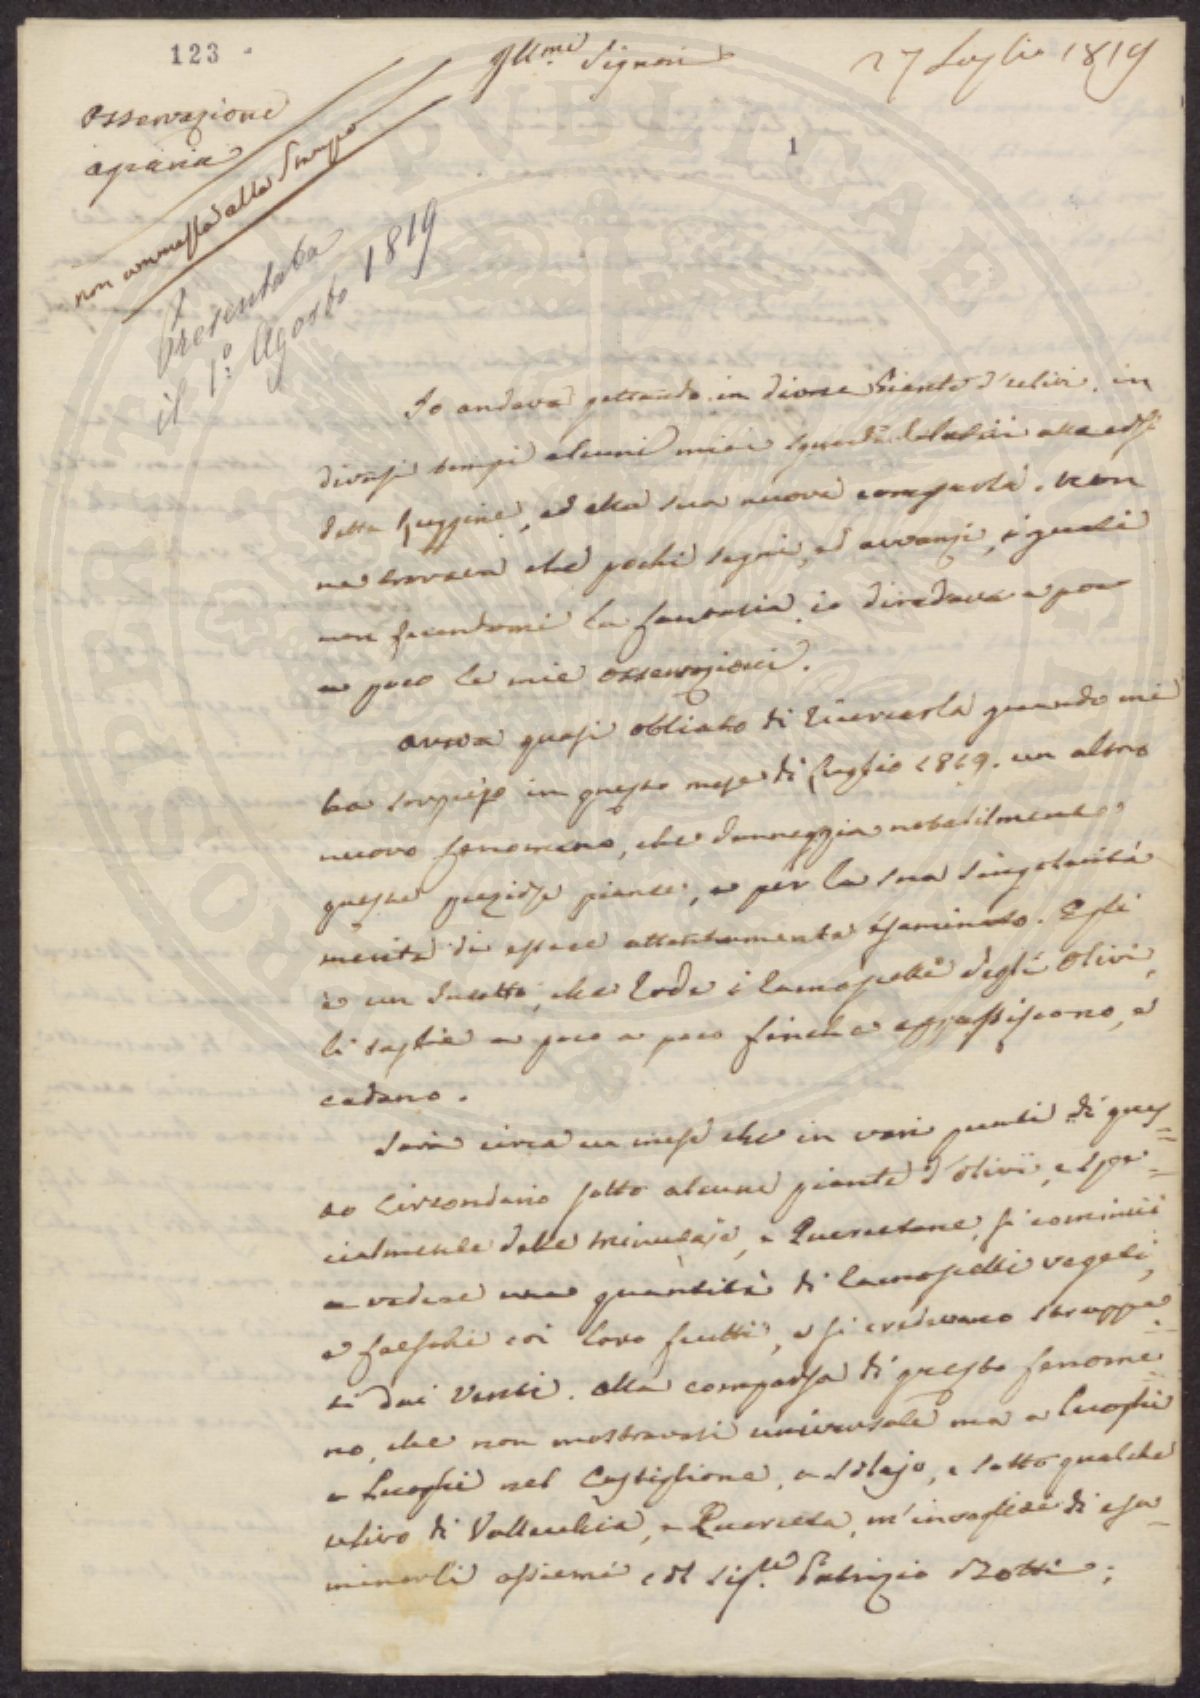 123
Ill.mi Signori
27 Luglio 1819
Osservazione
agraria
non ammessa alla Stampa
1
Presentata
il 1.° Agosto 1819
Io andava gettando in diverse Piante d'ulivi, in
diversi tempi alcuni miei sguardi alla così
detta Ruggine, ed alla sua nuova comparsa. Non
ne trovava che pochi segni, ed avvanzi, i quali
non fecondomi la fantasia, io diradava a po=
a poco le mie osservazioni.
Aveva quasi obliato di ricercarla quando mi
ha sorpreso in questo mese di Luglio 1819. un altro
nuovo fenomeno, che danneggia notabilmente
queste preziose piante, e per la sua singolarità
merita di essere attentamente esaminato. Egli
è un Insetto, che rode i ramoscelli degli Olivi,
li taglia a poco a poco finche appassiscono, e
cadano.
Sarà circa un mese che in vari punti di ques=
to Circondario sotto alcune piante d'Olivi, e spe=
cialmente delle minucaje, e Quercetane, si cominciò
a vedere una quantità di ramoscelli vegeti,
e freschi coi loro frutti, e si credevano strappa=
ti dai Venti. Alla comparsa di questo fenome=
no, che non mostravasi universale ma a Luoghi
a Luoghi nel Castiglione, a Solajo, e sotto qualche
ulivo di Vallecchia, e Querceta, m'invogliai di esa=
minarli assieme col Sig.re Patrizio Notti;